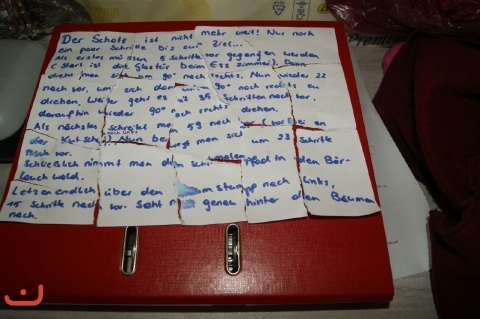 Der Schatz ist nicht mehr weit! Nur noch
ein paar Schritte bis zum Ziel...
Als erstes müssen 5 Schritte vor gegangen werden
(Start ist die Glastür beim Esszimmer). Dann
dreht man sich um 90° nach rechts. Nun wieder 22
nach vor, um sich dann um 90° nach rechts zu
drehen. Weiter geht es mit 35 Schritten nach vor,
daraufhin wieder 90° nach rechts drehen.
Als nächstes schreitet man 59 nach vor (vorbei an
der Kutsche). Nun bewegt man sich um 23 Schritte
nach links
nach vor.
Schließlich nimmt man den schmalen Pfad in den Bär-
lauchwald.
Letztendlich über den Baumstumpf nach links,
15 Schritte nach vor. Seht genau hinter den Bäumen
nach.
Premium